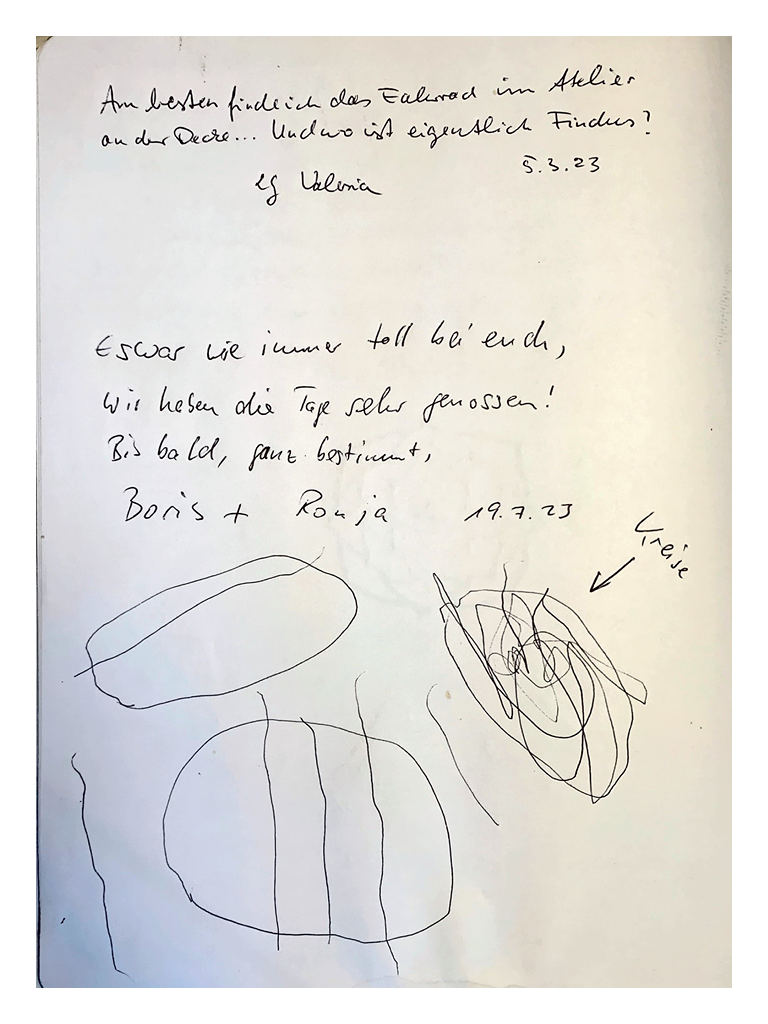 Am besten finde ich das Fahrrad im Atelier
an der Decke... Und wo ist eigentlich Findus?
5.3.23
Lg Valeria
Es war wie immer toll bei euch,
Wir haben die Tage sehr genossen!
Bis bald, ganz bestimmt,
Boris + Ronja 19.7.23
Kreise